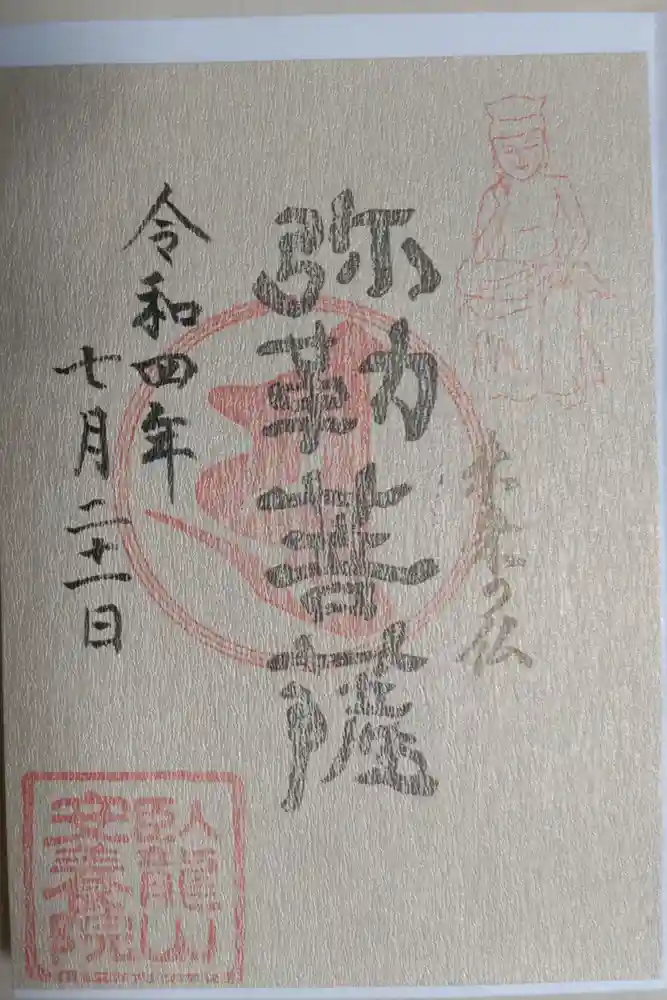 未来の仏
弥勒菩薩
令和四年
七月二十一日
臥龍山
安養院